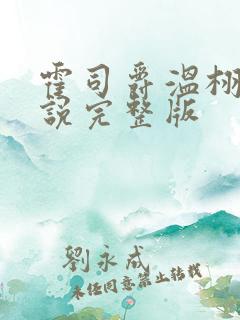 霍司爵温栩
說完整版
劉永成
未经同意禁止转载